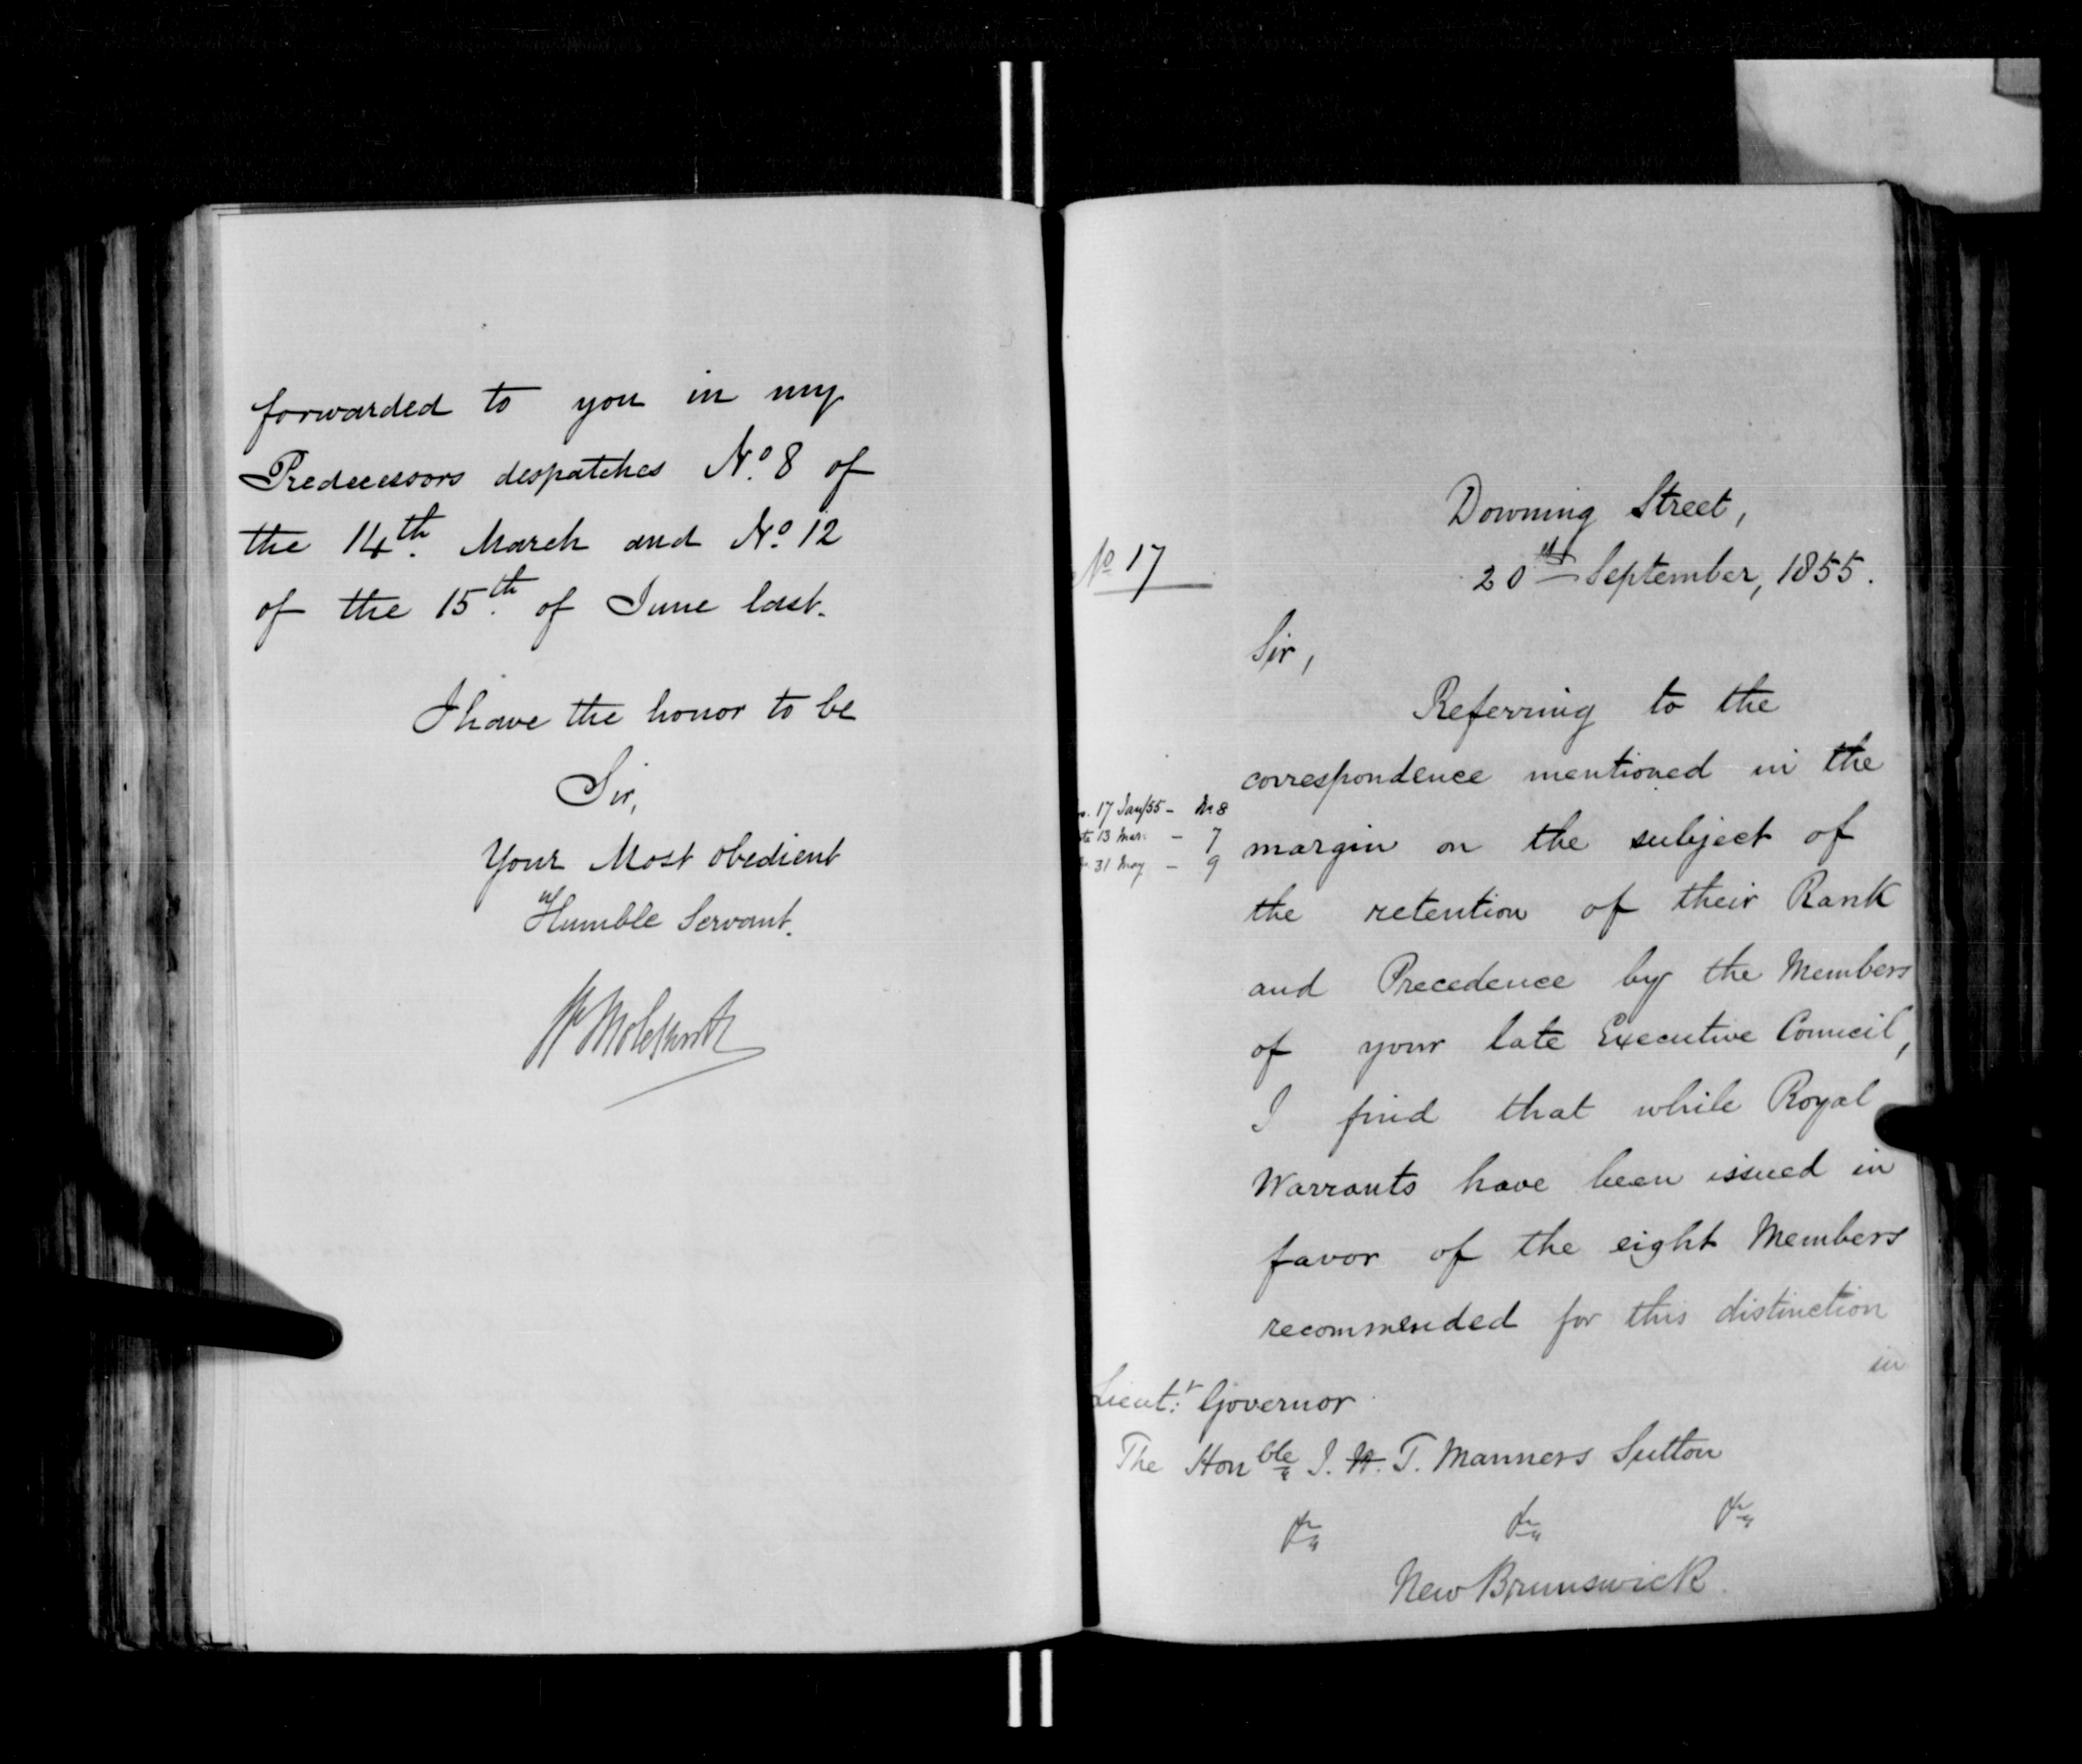 forwarded to you in my
Predecessors despatches No. 8 of
the 14th. March and No. 12
of the 15th. of June last.
I have the honor to be
Sir,
Your Most obedient
Humble Servant.
Wm Molesworth
Downing Street,
No 17
20th September, 1855.
Sir,
Referring to the
correspondence mentioned in the
17 Jan/55 - No 8
13 Mar: - 7
31 May - 9
margin on the subject of
the retention of their Rank
and Precedence by the Members
of your late Executive Council,
I find that while Royal
Warrants have been issued in
favor of the eight Members
recommended for this distinction
in
Lieut: Governor
The Honble J. H. T. Manners Sutton
&c &c &c
New Brunswick.